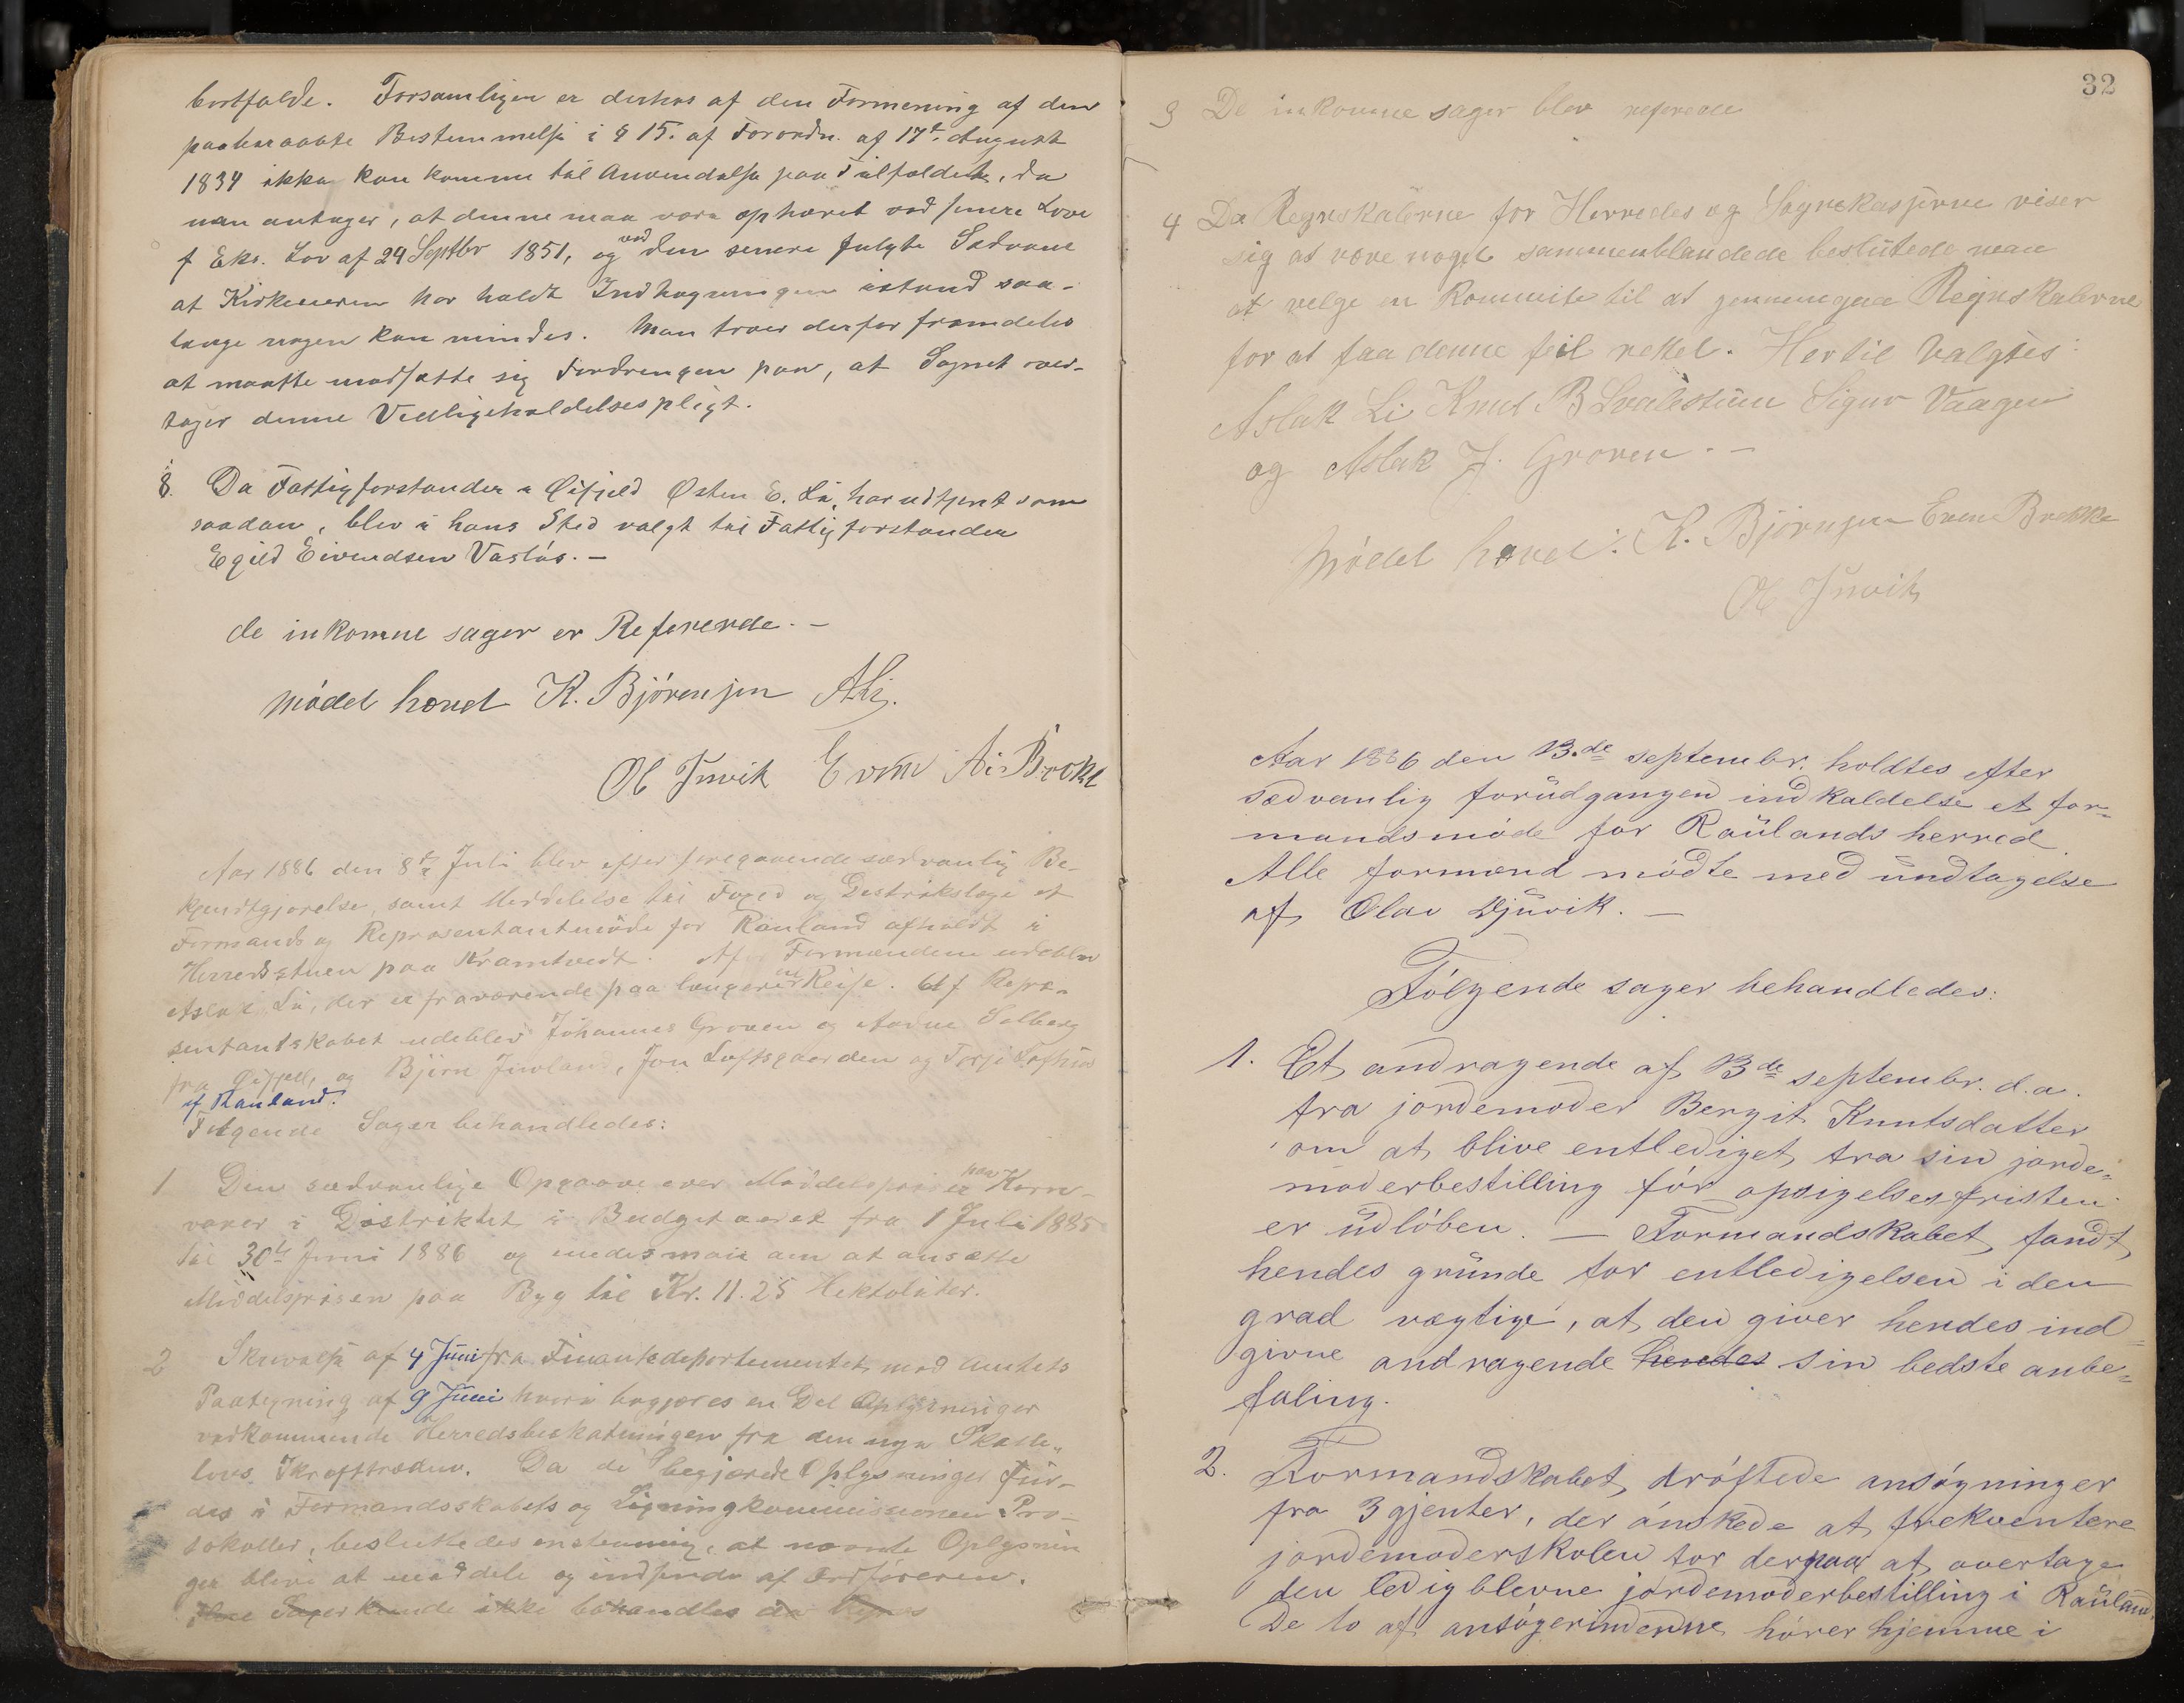 bortfalde. Forsamligen er derhos af den Formening af den
paaberaabte Bestemmelse i § 15. af Forordn. af 17de August
1834 ikke kan komme til Anvendelse paa Tilfældet, da
man antager, at denne maa være ophævet ved senere Love
f Eks. Lov af 24 Septbr 1851, og ved den senere fulgte Sædvane
at Kirkeeieren har holdt Indhegningen istand saa-
længe nogen kan mindes. Man troer derfor fremdeles
at maatte modsætte sig Fordringen paa, at Sognet ved-
tager denne Vedligeholdelsespligt.
8. Da Fattigforstander i Øifjeld Østen E. Li, har udtjent som
saadan, blev i hans Sted valgt til Fattigforstander
Egild Eivindsen Vaslós. —
de inkomne sager er Refererde. —
Mødet hævet K. Bjórensen ALi.
Ol Juvik Even Ai Brekk
Aar 1886 den 8de Juli blev efter foregaaende sædvanlig Be-
kjendtgjørelse, samt Meddelelse til Foged og Distriktslæge et
Formands og Repræsentantmøde for Rauland afholdt i
Herredsstuen paa Kramtvedt. Af Formændene udeblev
Aslak Li, der er fraværende paa længere Reise. Af Repræ-
sentantskabet udeblev Johannes Groven og Aadne Solberg
fra Øifjell, og Bjørn Juvland, Jon Loftsgaarden og Torje Lofthus
af Rauland.
Følgende Sager behandledes:
1 Den sædvanlige Opgaave over Middelpriser paa Korn-
varer i Distriktet i Budgetaaret fra 1 Juli 1885
til 30te Juni 1886 og enedes man om at ansætte
Middelprisen paa Byg til Kr. 11.25 Hektoliter.
2 Skrivelse af 4 Juni fra Finantsdepartementet med Amtets
Paategning af 9 Juni hvori begjæres en Del Oplysninger
vedkommende Herredsbeskatningen fra den nye Skatte-
lovs Ikrafttræden. Da de begjærede Oplysninger fin-
des i Formandsskabets og Ligningkommissionens Pro-
tokoller, besluttedes enstemmig, at nævnte Oplysnin
ger blive at meddele og indsende af Ordføreren.
Sager kunde ikke behandles da
32
3 De inkomne sager blev referede
4 Da Regnskaberne for Herredes og Sognekasserne viser
sig at være noget sammenblandede beslutede man
at velge en Kommite til at gennemgaa Regnskaberne
for at faa denne feil rettet. Hertil Valgtes:
Aslak Li Knut B Svalestuen Sigur Vaagen
og Aslak J. Groven. —
Mødet hævet: K. Bjørnsen Even Brekke
Ol Juvik
Aar 1886 den 13.de septembr. holdtes efter
sædvanlig forudgangen indkaldelse et for-
mandsmøde for Raulands herred
Alle formænd mødte med undtagelse
af Olav Djuvik. —
Følgende sager behandledes:
1. Et andragende af 13de septembr. d.a.
fra jordemoder Bergit Knutsdatter
om at blive entlediget fra sin jorde-
moderbestilling før opsigelsesfristen
er udløben. — Formandskabet fandt
hendes grunde for entledigelsen i den
grad vægtige, at den giver hendes ind-
givne andragende hendes sin bedste anbe-
faling.
2. Formandskabet drøftede ansøgninger
fra 3 gjenter, der ønskede at frekventere
jordemoderskolen for derpaa at overtage
den ledigblevne jordemoderbestilling i Rauland.
De to af ansøgerinderne hører hjemme i